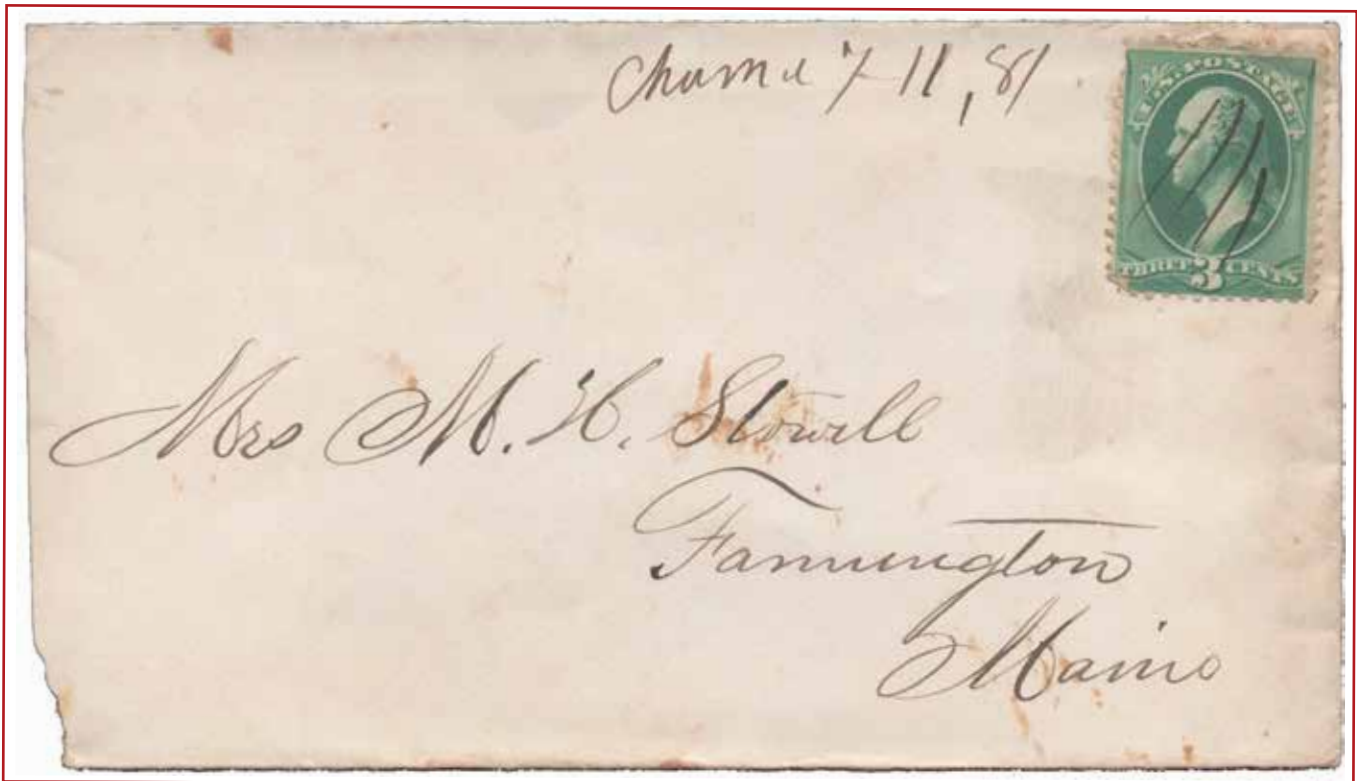 Chama 7-11, 81
U.S. POSTAGE
THREE 3 CENTS
Mrs M. H. Stowell
Farmington
Maine